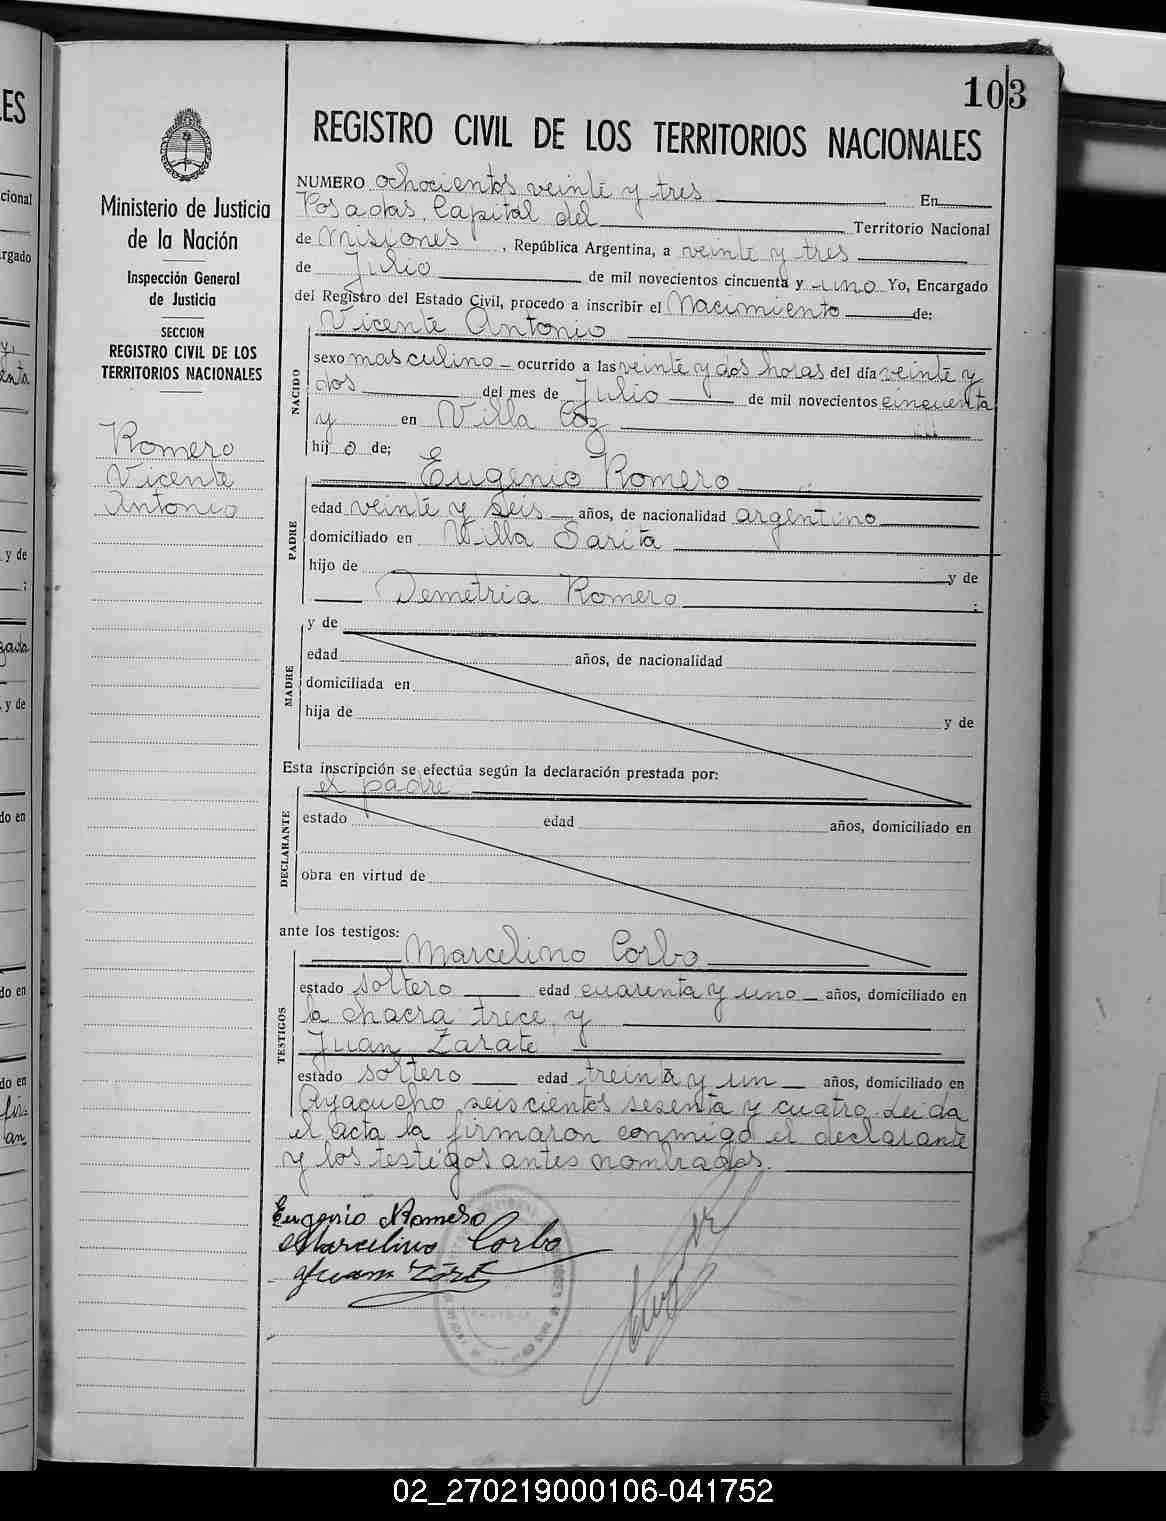 103
REGISTRO CIVIL DE LOS TERRITORIOS NACIONALES
Ministerio de Justicia
de la Nación
Inspección General
de Justicia
SECCION
REGISTRO CIVIL DE LOS
TERRITORIOS NACIONALES
Romero
Vicente
Antonio
NUMERO ochocientos veinte y tres En
Posadas, Capital del Territorio Nacional
de Misiones, República Argentina, a veinte y tres
de Julio de mil novecientos cincuenta y uno Yo, Encargado
del Registro del Estado Civil, procedo a inscribir el Nacimiento de:
Vicente Antonio
NACIDO
sexo masculino ocurrido a las veinte y dos horas del día veinte y
dos del mes de Julio de mil novecientos cincuenta
y en Villa
hijo de;
Eugenio Romero
PADRE
edad veinte y seis años, de nacionalidad argentino
domiciliado en Villa Sarita
hijo de y de
Demetria Romero ;
MADRE
y de
edad años, de nacionalidad
domiciliada en
hija de y de
Esta inscripción se efectúa según la declaración prestada por:
el padre
DECLARANTE
estado edad años, domiciliado en
obra en virtud de
ante los testigos:
Marcelino Corbo
TESTIGOS
estado soltero edad cuarenta y uno años, domiciliado en
la chacra trece, y
Juan Zarate
estado soltero edad treinta y un años, domiciliado en
Ayacucho seiscientos sesenta y cuatro. Leida
el acta la firmaron conmigo el declarante
y los testigos antes nombrados.
Eugenio Romero
Marcelino Corbo
Juan
02_270219000106-041752